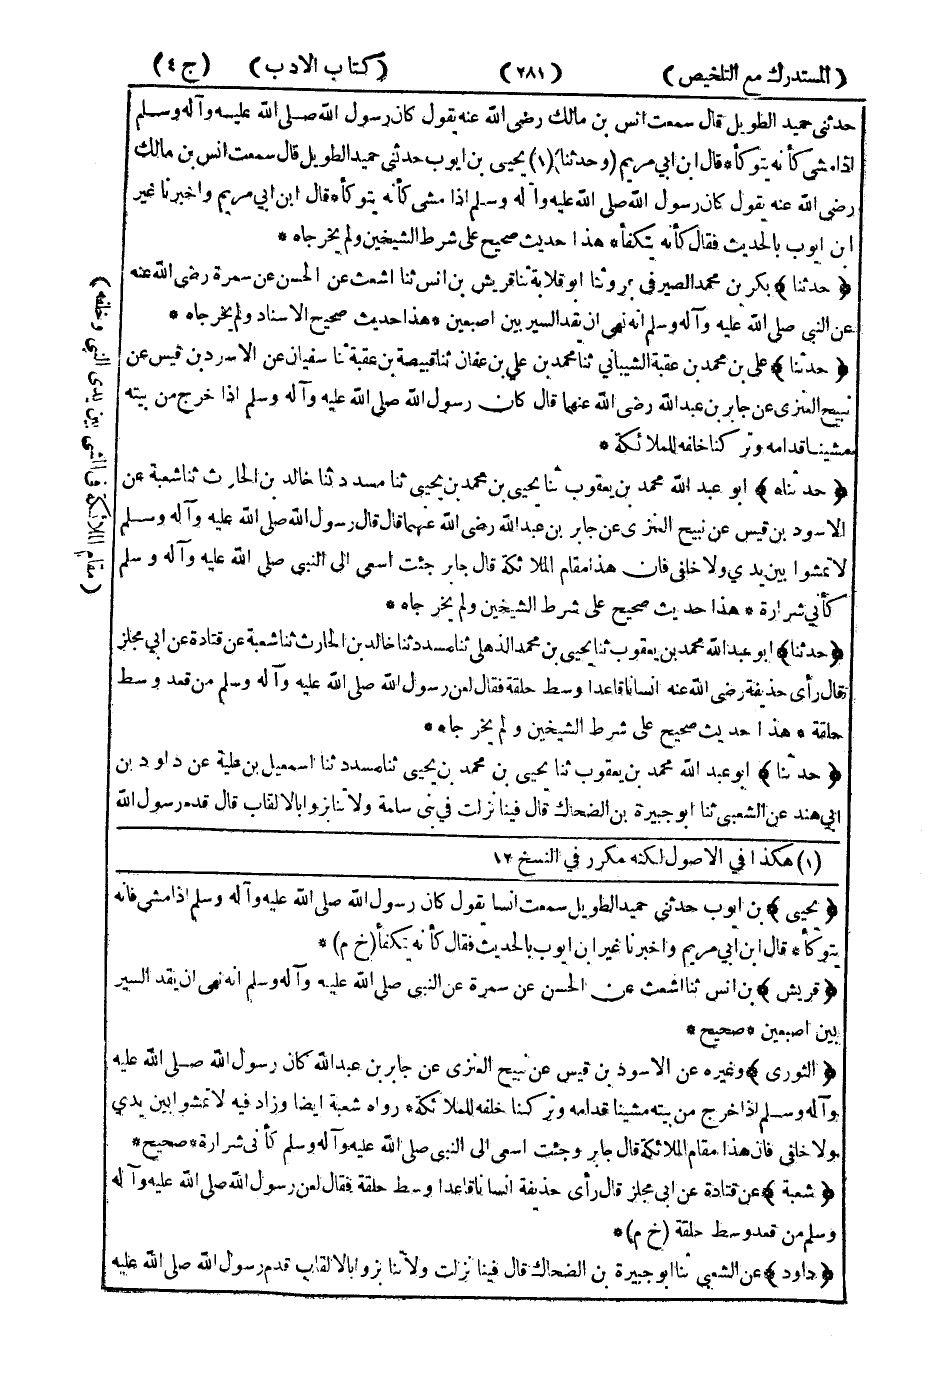 (المستدرك مع التلخيص) (٢٨١) (كتاب الادب) (ج ٤)
حدثنى حميد الطويل قال سمعت انس بن مالك رضى الله عنه يقول كان رسول الله صلى الله عليه وآله وسلم
اذا مشى كأنه يتوكأ * قال ابن ابي مريم (وحدثنا)(١) يحيى بن ايوب حدثنى حميد الطويل قال سمعت انس بن مالك
رضى الله عنه يقول كان رسول الله صلى الله عليه وآله وسلم اذا مشى كأنه يتوكأ * قال ابن ابي مريم واخبرنا غير
ابن ايوب بالحديث فقال كأنه يتكفأ * هذا حديث صحيح على شرط الشيخين ولم يخرجاه *
﴿ حدثنا ﴾ بكر بن محمد الصيرفى بمرو ثنا ابو قلابة ثنا قريش بن انس ثنا اشعث عن الحسن عن سمرة رضى الله عنه
عن النبى صلى الله عليه وآله وسلم انه نهى ان يقد السير بين اصبعين * هذا حديث صحيح الاسناد ولم يخرجاه *
﴿ حدثنا ﴾ على بن محمد بن عقبة الشيباني ثنا محمد بن علي بن عفان ثنا قبيصة بن عقبة ثنا سفيان عن الاسود بن قيس عن
نبيح العنزى عن جابر بن عبدالله رضى الله عنهما قال كان رسول الله صلى الله عليه وآله وسلم اذا خرج من بيته
مشينا قدامه وتركنا خلفه للملائكة *
﴿ حدثناه ﴾ ابو عبد الله محمد بن يعقوب ثنا يحيى بن محمد بن يحيى ثنا مسدد ثنا خالد بن الحارث ثنا شعبة عن
الاسود بن قيس عن نبيح العنزى عن جابر بن عبدالله رضى الله عنهما قال قال رسول الله صلى الله عليه وآله وسلم
لا تمشوا بين يدي ولا خلفى فان هذا مقام الملائكة قال جابر جئت اسعى الى النبى صلى الله عليه وآله وسلم
كأني شرارة * هذا حديث صحيح على شرط الشيخين ولم يخرجاه *
﴿ حدثنا ﴾ ابو عبدالله محمد بن يعقوب ثنا يحيى بن محمد الذهلى ثنا مسدد ثنا خالد بن الحارث ثنا شعبة عن قتادة عن ابي مجلز
قال رأى حذيفة رضى الله عنه انسانا قاعدا وسط حلقة فقال لعن رسول الله صلى الله عليه وآله وسلم من قعد وسط
حلقة * هذا حديث صحيح على شرط الشيخين ولم يخرجاه *
﴿ حدثنا ﴾ ابو عبد الله محمد بن يعقوب ثنا يحيى بن محمد بن يحيى ثنا مسدد ثنا اسمعيل بن علية عن داود بن
ابي هند عن الشعبى ثنا ابو جبيرة بن الضحاك قال فينا نزلت في بنى سلمة ولا تنابزوا بالالقاب قال قدم رسول الله
(مقام الملائكة فى المشى بين يدى النبى وخلفه)
(١) هكذا في الاصول لكنه مكرر في النسخ ١٢
﴿ يحيى ﴾ بن ايوب حدثني حميد الطويل سمعت انسا يقول كان رسول الله صلى الله عليه وآله وسلم اذا مشى فانه
يتوكأ * قال ابن ابي مريم واخبرنا غير ابن ايوب بالحديث فقال كأنه يتكفأ (خ م) *
﴿ قريش ﴾ بن انس ثنا اشعث عن الحسن عن سمرة عن النبى صلى الله عليه وآله وسلم انه نهى ان يقد السير
بين اصبعين * صحيح *
﴿ الثورى ﴾ وغيره عن الاسود بن قيس عن نبيح العنزى عن جابر بن عبدالله كان رسول الله صلى الله عليه
وآله وسلم اذا خرج من بيته مشينا قدامه وتركنا خلفه للملائكة * رواه شعبة ايضا وزاد فيه لا تمشوا بين يدي
ولا خلفى فان هذا مقام الملائكة قال جابر وجئت اسعى الى النبى صلى الله عليه وآله وسلم كأنى شرارة * صحيح *
﴿ شعبة ﴾ عن قتادة عن ابي مجلز قال رأى حذيفة انسانا قاعدا وسط حلقة فقال لعن رسول الله صلى الله عليه وآله
وسلم من قعد وسط حلقة (خ م) *
﴿ داود ﴾ عن الشعبي ثنا ابو جبيرة بن الضحاك قال فينا نزلت ولا تنابزوا بالالقاب قدم رسول الله صلى الله عليه